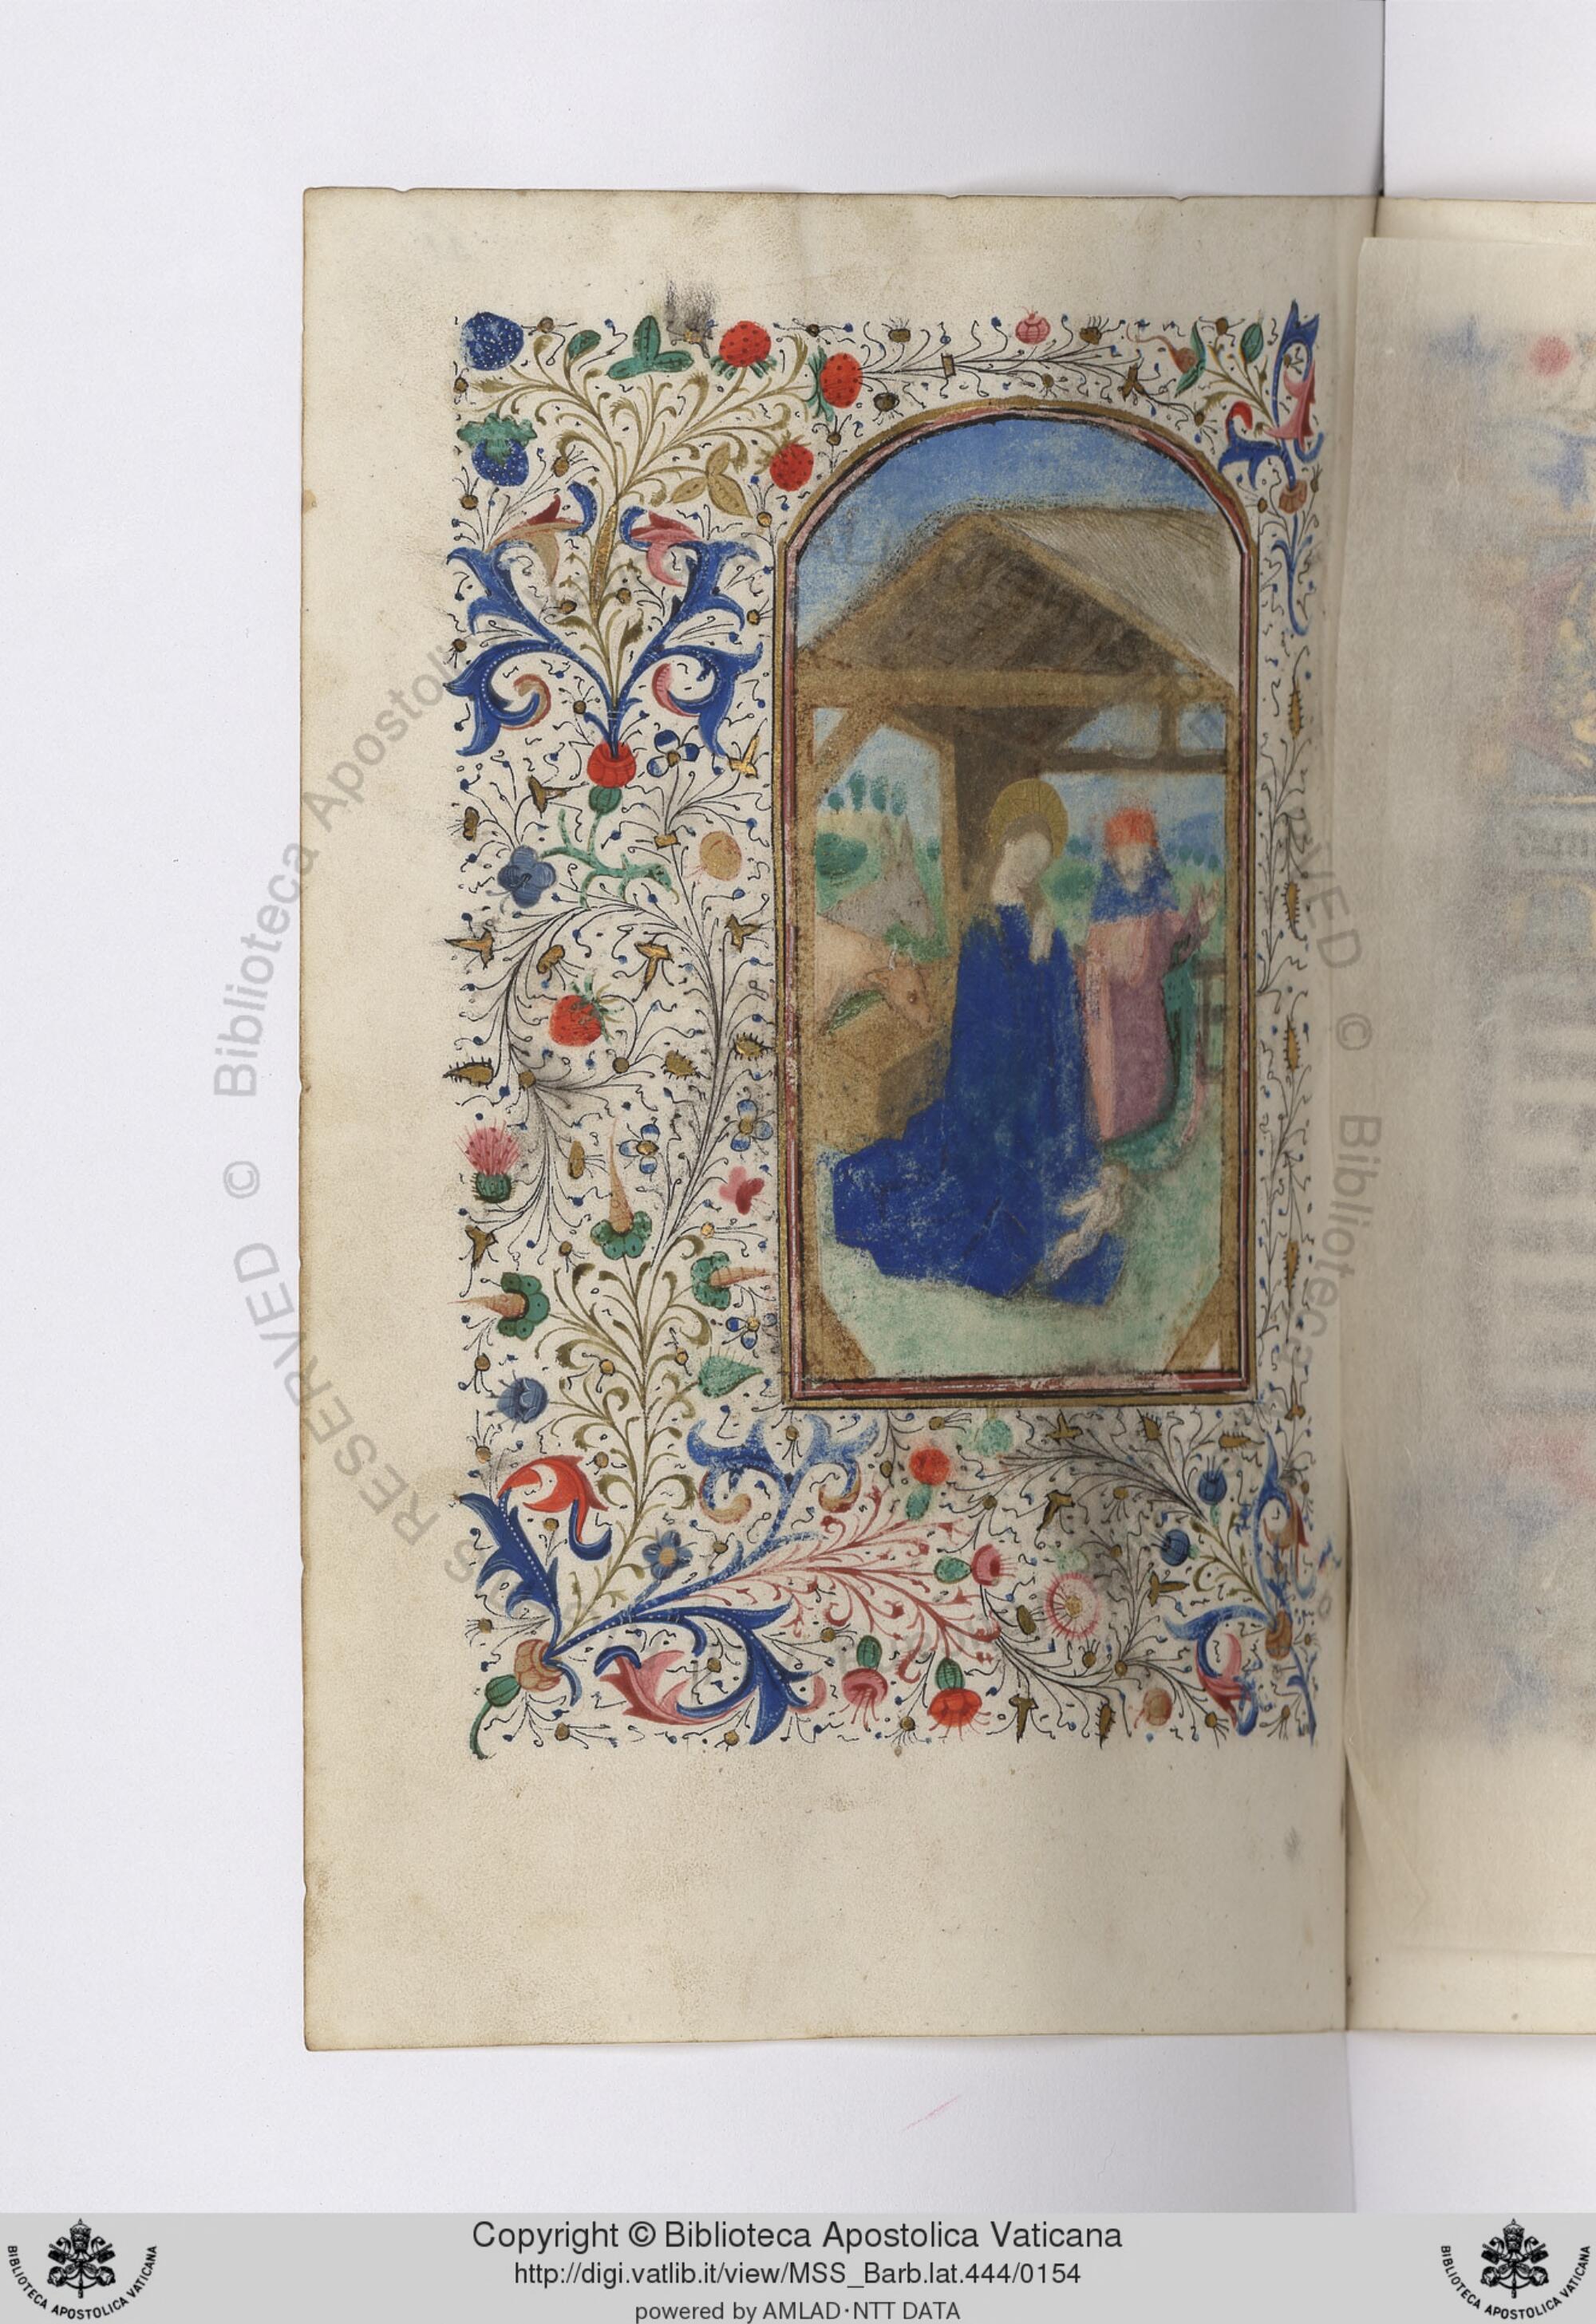 RESERVED © Biblioteca Apostoli
VED © Biblioteca
Copyright © Biblioteca Apostolica Vaticana
http://digi.vatlib.it/view/MSS_Barb.lat.444/0154
powered by AMLAD·NTT DATA
BIBLIOTECA APOSTOLICA VATICANA
BIBLIOTECA APOSTOLICA VATICANA